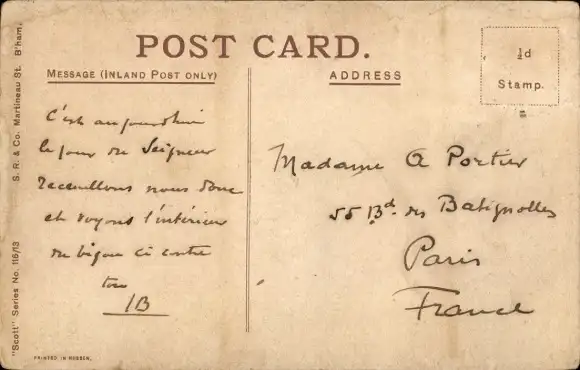 POST CARD.
MESSAGE (INLAND POST ONLY)
ADDRESS
½d
Stamp.
C'est aujourdhui
le jour du Seigneur
recueillons nous donc
et voyons l'intérieur
du bijou ci contre
IB
Madame A Portier
55 Bd. des Batignolles
Paris
France
"Scott" Series No. 116/13 S. R. & Co. Martineau St. B'ham.
PRINTED IN